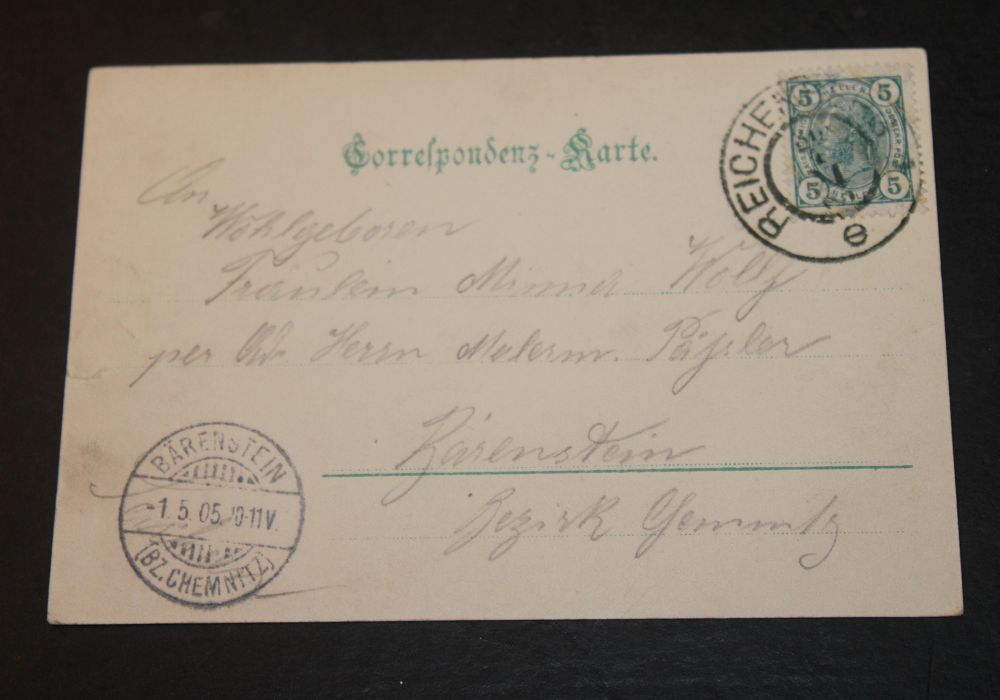 Correspondenz-Karte.
5 5
5 5
REICHEN
e
An
Wohlgeboren
Fräulein Minna Wolf
per Adr. Herrn Malerm. Päßler
Bärenstein
Bezirk Gemnitz
BÄRENSTEIN
-1.5.05.10-11V.
(BZ.CHEMNITZ)